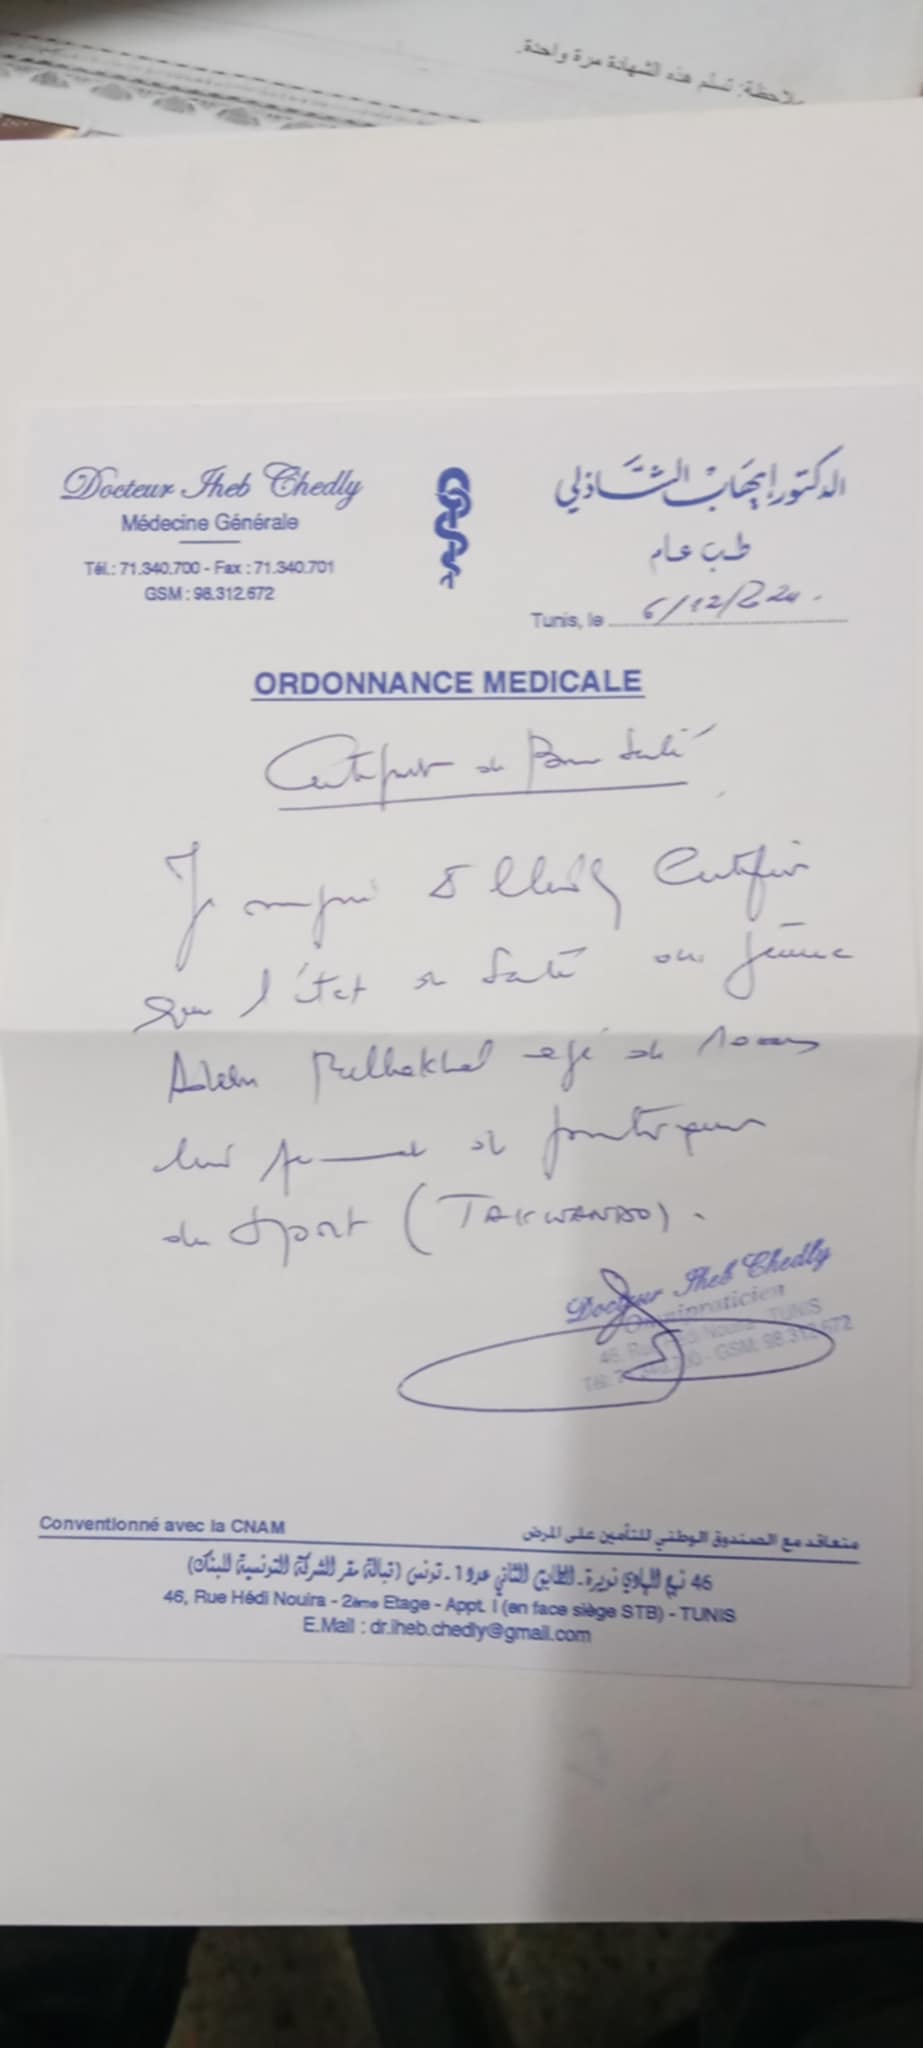 ملاحظة: تسلم هذه الشهادة مرة واحدة.
Docteur Iheb Chedly
Médecine Générale
Tél.: 71.340.700 - Fax : 71.340.701
GSM : 98.312.672
الدكتور إيهاب الشاذلي
طب عام
Tunis, le 6/12/2024.
ORDONNANCE MEDICALE
Certificat de Bonne Santé
Je soussigné Dr Chedly Certifie
que l'état de Santé du jeune
Adem âgé de 10 ans
lui permet de pratiquer
du Sport (TAKWANDO).
Docteur Iheb Chedly
Omnipraticien
46, Rue Hédi Nouira - TUNIS
Tél: 71.340.700 - GSM: 98.312.672
Conventionné avec la CNAM
متعاقد مع الصندوق الوطني للتأمين على المرض
46 نهج الهادي نويرة - الطابق الثاني عدد 1 - تونس (قبالة مقر الشركة التونسية للبنك)
46, Rue Hédi Nouira - 2ème Etage - Appt. I (en face siège STB) - TUNIS
E.Mail : dr.iheb.chedly@gmail.com